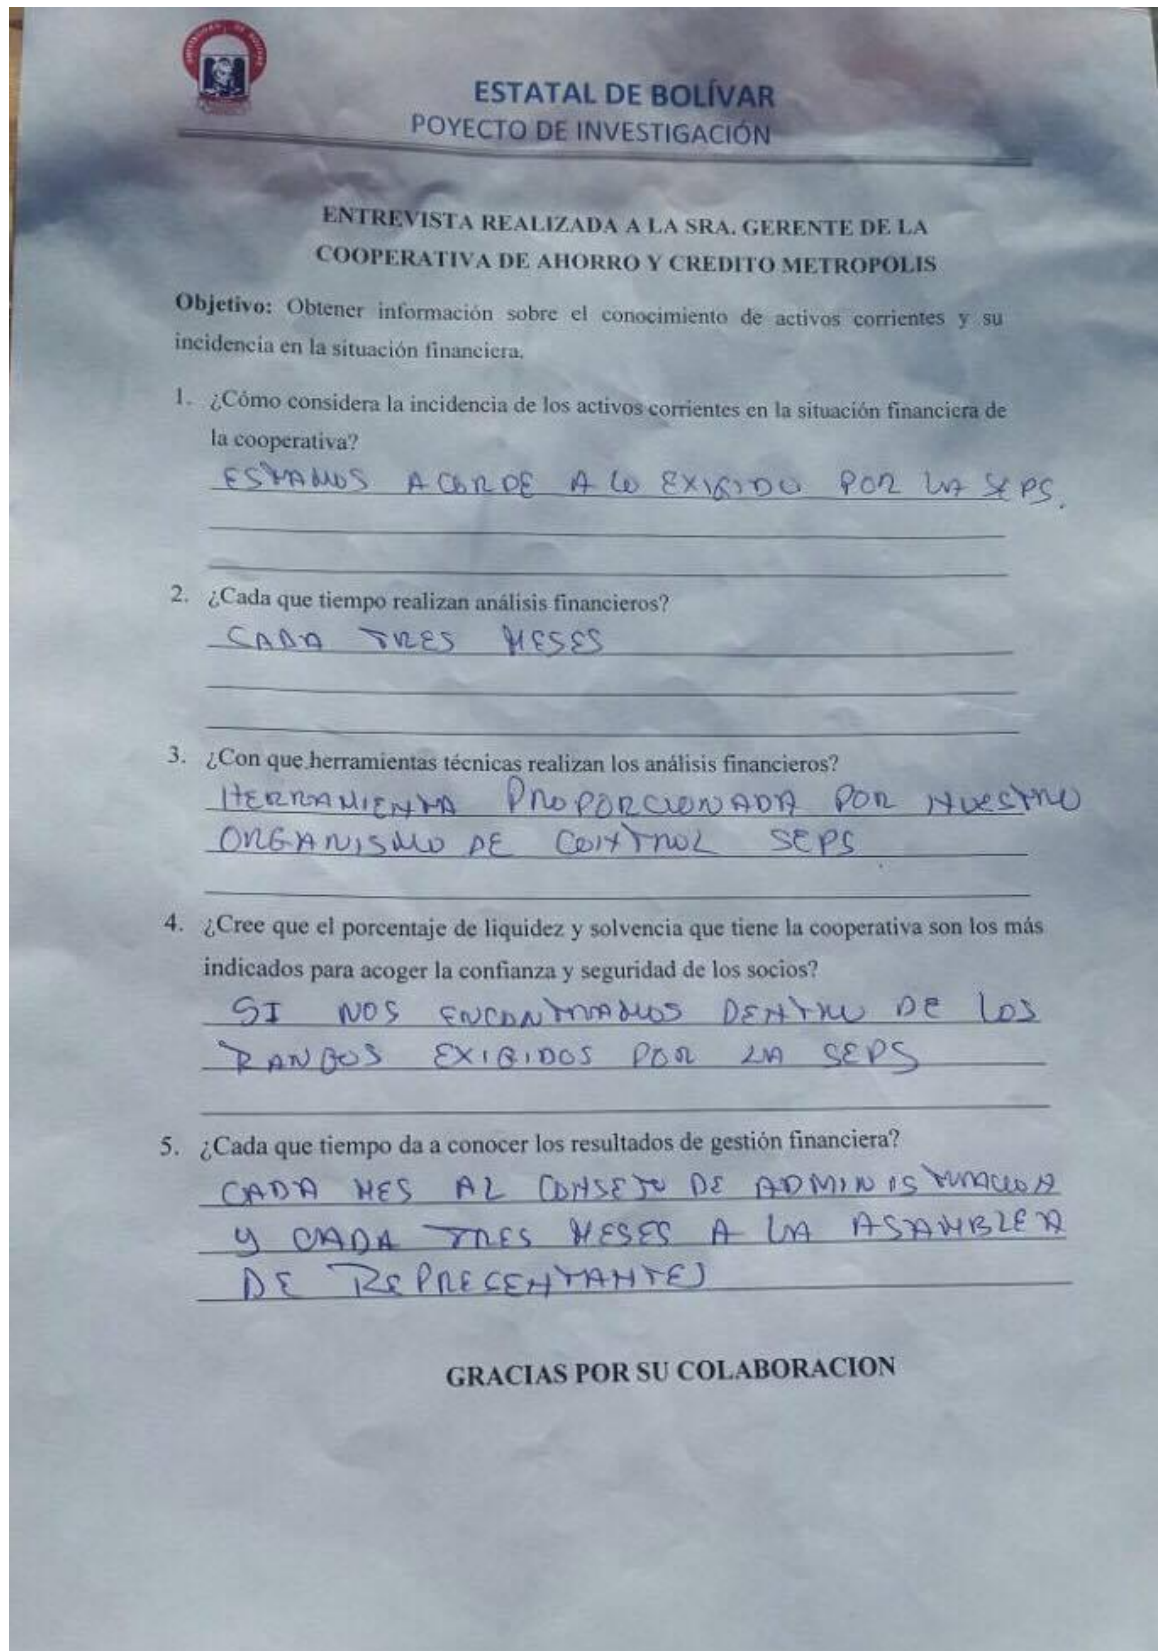 ESTATAL DE BOLÍVAR
POYECTO DE INVESTIGACIÓN
ENTREVISTA REALIZADA A LA SRA. GERENTE DE LA
COOPERATIVA DE AHORRO Y CREDITO METROPOLIS
Objetivo: Obtener información sobre el conocimiento de activos corrientes y su
incidencia en la situación financiera.
1. ¿Cómo considera la incidencia de los activos corrientes en la situación financiera de
la cooperativa?
ESTAMOS ACORDE A LO EXIGIDO POR LA SEPS.
2. ¿Cada que tiempo realizan análisis financieros?
CADA TRES MESES
3. ¿Con que herramientas técnicas realizan los análisis financieros?
HERRAMIENTA PROPORCIONADA POR NUESTRO
ORGANISMO DE CONTROL SEPS
4. ¿Cree que el porcentaje de liquidez y solvencia que tiene la cooperativa son los más
indicados para acoger la confianza y seguridad de los socios?
SI NOS ENCONTRAMOS DENTRO DE LOS
RANGOS EXIGIDOS POR LA SEPS
5. ¿Cada que tiempo da a conocer los resultados de gestión financiera?
CADA MES AL CONSEJO DE ADMINISTRACION
Y CADA TRES MESES A LA ASAMBLEA
DE REPRECENTANTES
GRACIAS POR SU COLABORACION